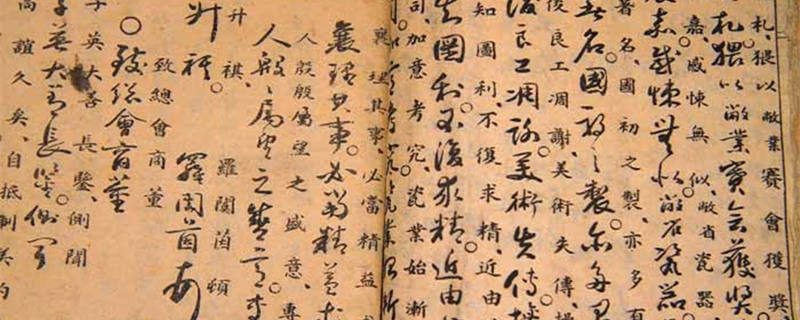 札、猥以敝業賽會獲獎、
札。猥以敝業賽會獲獎
嘉、感悚無似、敝省瓷器
嘉感悚無似敝省瓷器
著名、國初之製、亦多有
著名。國初之製。亦多
後良工凋謝、美術失傳、
後良工凋謝。美術失傳
知圖利、不復求精、近由
圖利不復求精。近由
司加意考究、瓷業始漸
襄理其事、必當精益
襄理其事。必當精益求
人殷殷屬望之盛意、專
人殷殷屬望之盛意。專
升祺、 羅閏茵頓
升祺。 羅閏茵頓
致總會商董
○致總會商董
英大善長鑒、側聞
英大善長鑒。側聞
誼久矣、自抵制美約